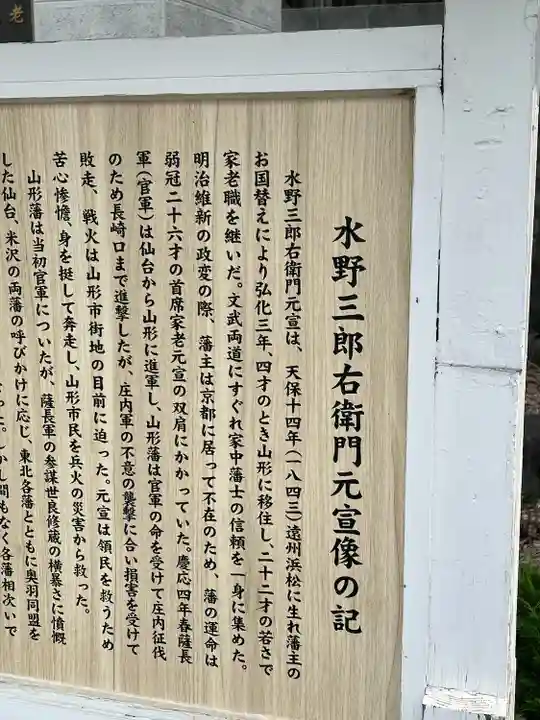 老
水野三郎右衛門元宣像の記
水野三郎右衛門元宣は、天保十四年(一八四三)遠州浜松に生れ藩主の
お国替えにより弘化三年、四才のとき山形に移住し、二十二才の若さで
家老職を継いだ。文武両道にすぐれ家中藩士の信頼を一身に集めた。
明治維新の政変の際、藩主は京都に居って不在のため、藩の運命は
弱冠二十六才の首席家老元宣の双肩にかかっていた。慶応四年春薩長
軍(官軍)は仙台から山形に進軍し、山形藩は官軍の命を受けて庄内征伐
のため長崎口まで進撃したが、庄内軍の不意の襲撃に合い損害を受けて
敗走、戦火は山形市街地の目前に迫った。元宣は領民を救うため
苦心惨憺、身を挺して奔走し、山形市民を兵火の災害から救った。
山形藩は当初官軍についたが、薩長軍の参謀世良修蔵の横暴さに憤慨
した仙台、米沢の両藩の呼びかけに応じ、東北各藩とともに奥羽同盟を
しかし間もなく各藩相次いで